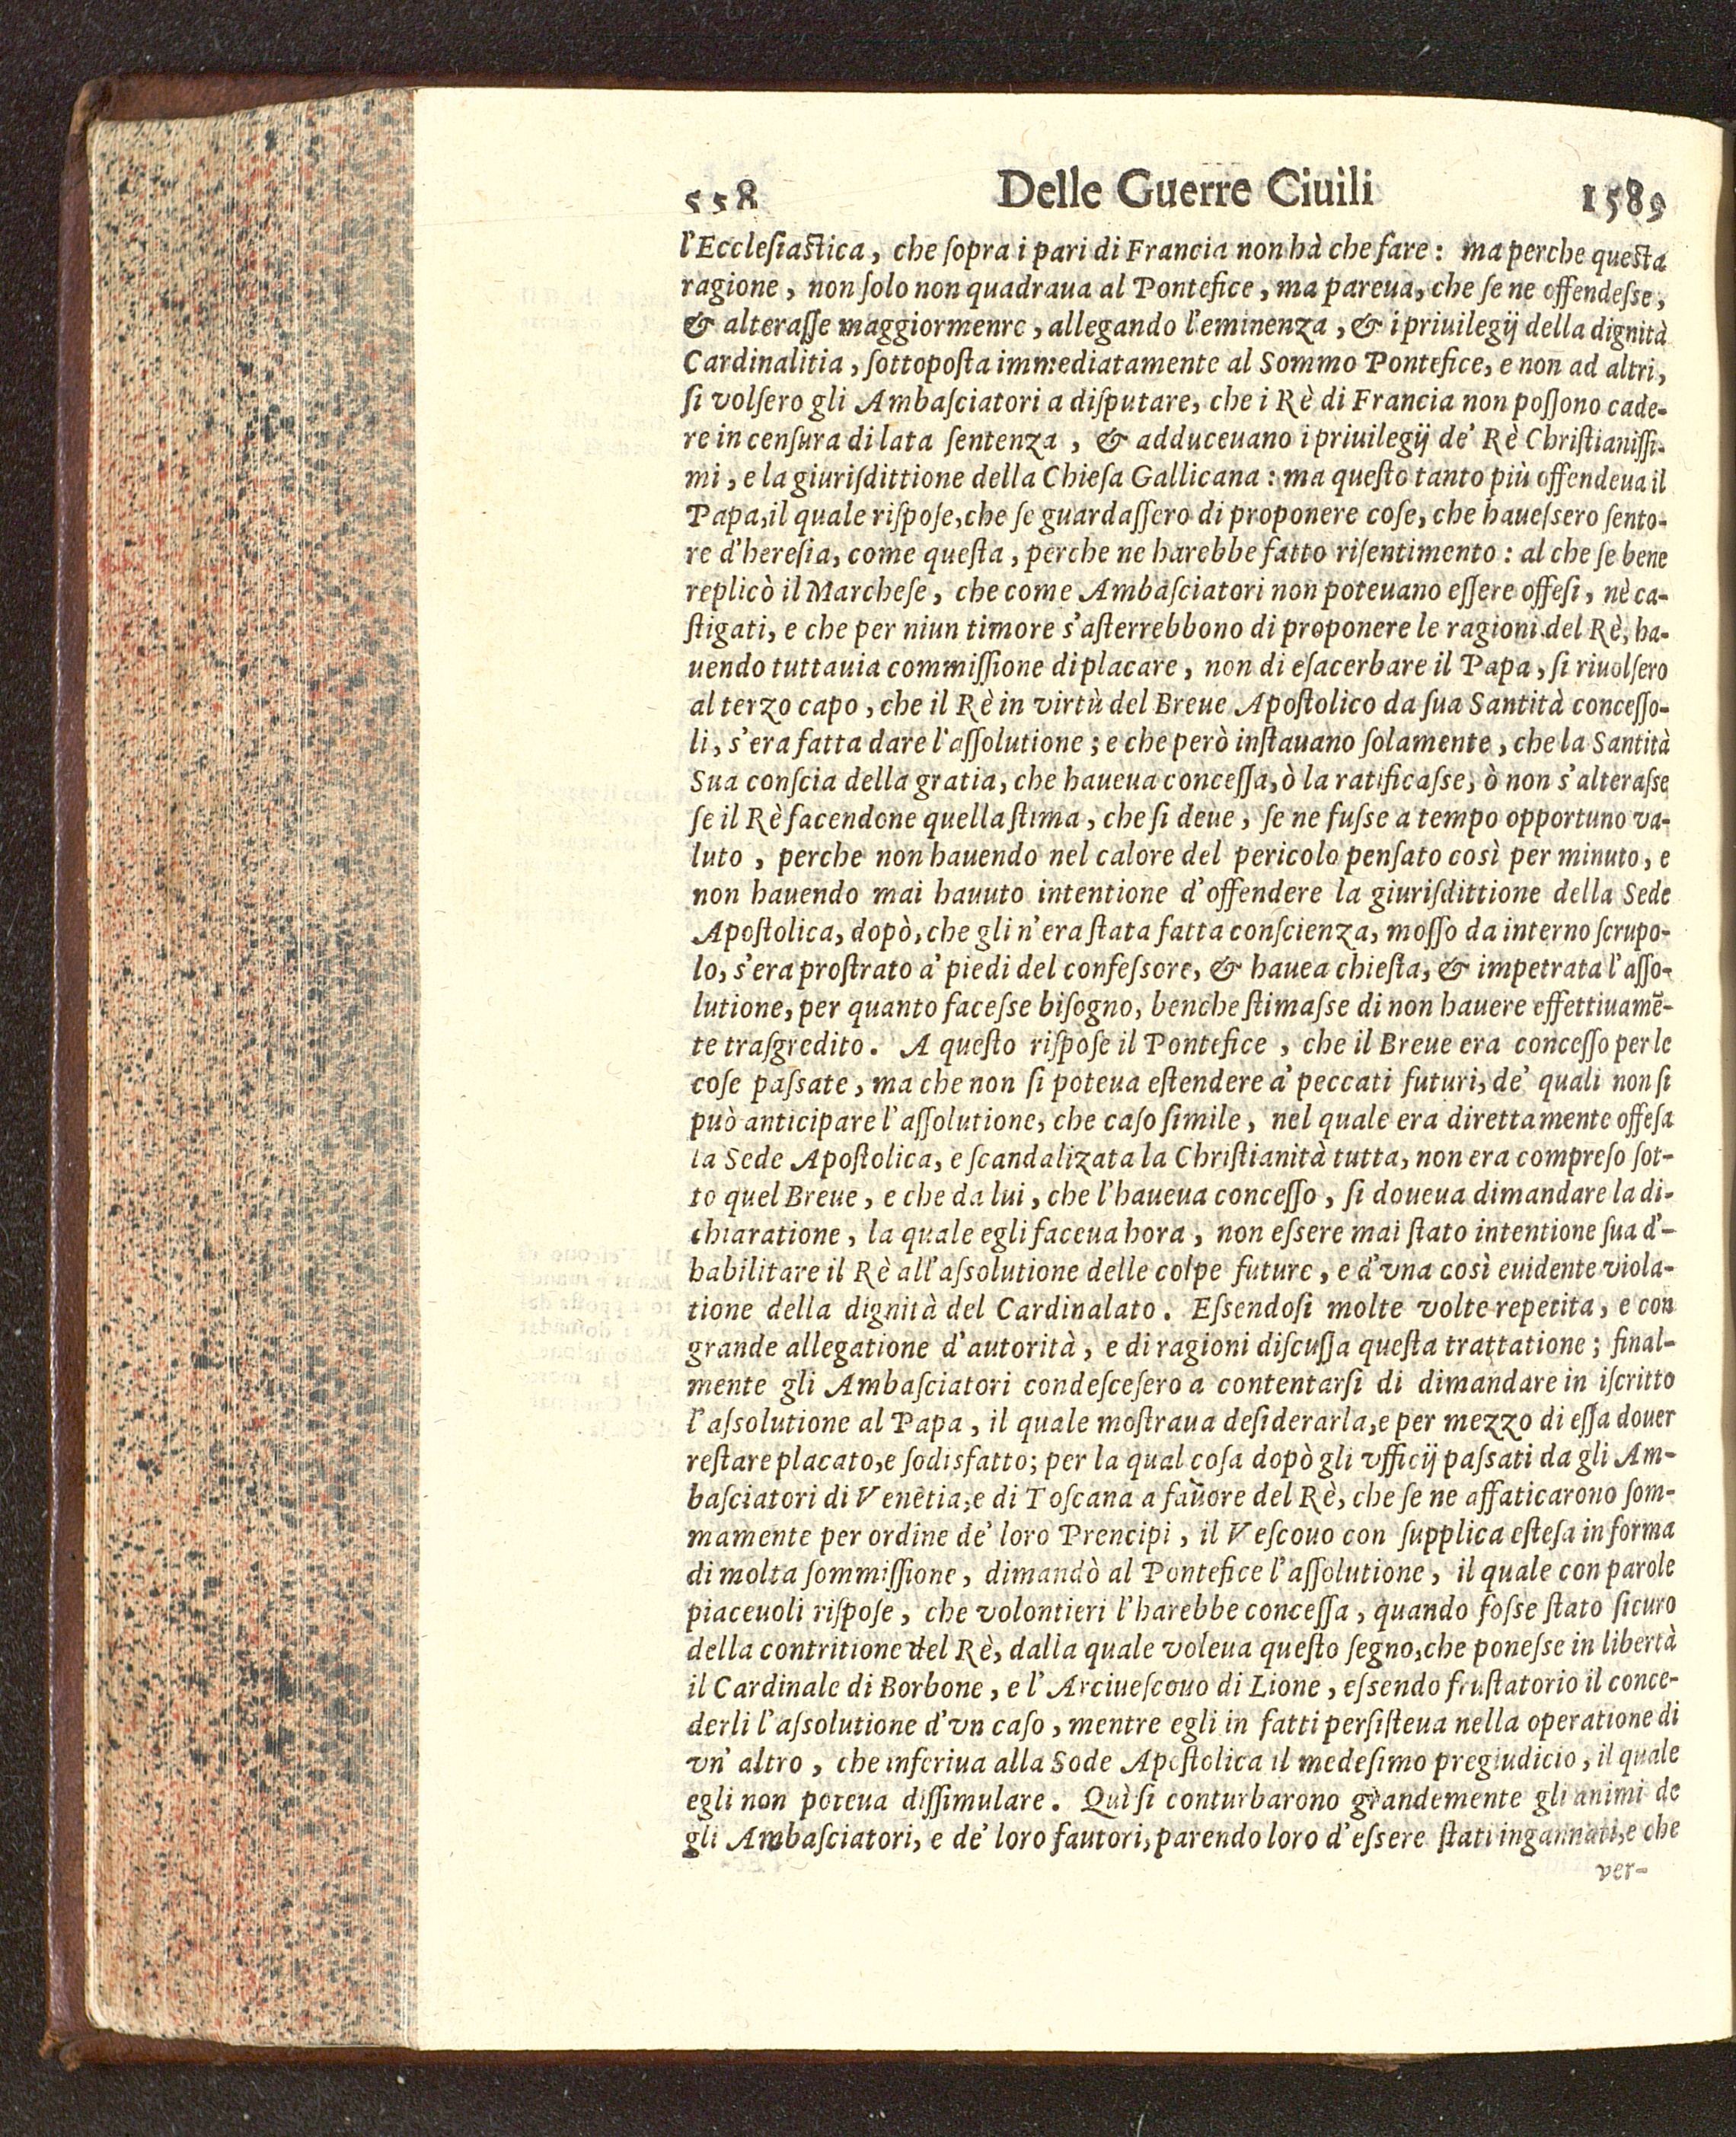 558 Delle Guerre Ciuili 1589
l'Ecclesiastica, che sopra i pari di Francia non hà che fare: ma perche questa
ragione, non solo non quadraua al Pontefice, ma pareua, che se ne offendesse,
& alterasse maggiormenre, allegando l'eminenza, & i priuilegij della dignità
Cardinalitia, sottoposta immediatamente al Sommo Pontefice, e non ad altri,
si volsero gli Ambasciatori a disputare, che i Rè di Francia non possono cade-
re in censura di lata sentenza, & adduceuano i priuilegij de' Rè Christianissi-
mi, e la giurisdittione della Chiesa Gallicana: ma questo tanto più offendeua il
Papa, il quale rispose, che se guardassero di proponere cose, che hauessero sento-
re d'heresia, come questa, perche ne harebbe fatto risentimento: al che se bene
replicò il Marchese, che come Ambasciatori non poteuano essere offesi, nè ca-
stigati, e che per niun timore s'asterrebbono di proponere le ragioni del Rè, ha-
uendo tuttauia commissione di placare, non di esacerbare il Papa, si riuolsero
al terzo capo, che il Rè in virtù del Breue Apostolico da sua Santità concesso-
li, s'era fatta dare l'assolutione; e che però instauano solamente, che la Santità
Sua conscia della gratia, che haueua concessa, ò la ratificasse, ò non s'alterasse
se il Rè facendone quella stima, che si deue, se ne fusse a tempo opportuno va-
luto, perche non hauendo nel calore del pericolo pensato così per minuto, e
non hauendo mai hauuto intentione d'offendere la giurisdittione della Sede
Apostolica, dopò, che gli n'era stata fatta conscienza, mosso da interno scrupo-
lo, s'era prostrato a' piedi del confessore, & hauea chiesta, & impetrata l'asso-
lutione, per quanto facesse bisogno, benche stimasse di non hauere effettiuamē-
te trasgredito. A questo rispose il Pontefice, che il Breue era concesso per le
cose passate, ma che non si poteua estendere a' peccati futuri, de' quali non si
può anticipare l'assolutione, che caso simile, nel quale era direttamente offesa
la Sede Apostolica, e scandalizata la Christianità tutta, non era compreso sot-
to quel Breue, e che da lui, che l'haueua concesso, si doueua dimandare la di-
chiaratione, la quale egli faceua hora, non essere mai stato intentione sua d'-
habilitare il Rè all'assolutione delle colpe future, e d'vna così euidente viola-
tione della dignità del Cardinalato. Essendosi molte volte repetita, e con
grande allegatione d'autorità, e di ragioni discussa questa trattatione; final-
mente gli Ambasciatori condescesero a contentarsi di dimandare in iscritto
l'assolutione al Papa, il quale mostraua desiderarla, e per mezzo di essa douer
restare placato, e sodisfatto; per la qual cosa dopò gli vfficij passati da gli Am-
basciatori di Venetia, e di Toscana a fauore del Rè, che se ne affaticarono som-
mamente per ordine de' loro Prencipi, il Vescouo con supplica estesa in forma
di molta sommissione, dimandò al Pontefice l'assolutione, il quale con parole
piaceuoli rispose, che volontieri l'harebbe concessa, quando fosse stato sicuro
della contritione del Rè, dalla quale voleua questo segno, che ponesse in libertà
il Cardinale di Borbone, e l'Arciuescouo di Lione, essendo frustatorio il conce-
derli l'assolutione d'vn caso, mentre egli in fatti persisteua nella operatione di
vn' altro, che inferiua alla Sode Apostolica il medesimo pregiudicio, il quale
egli non poteua dissimulare. Quì si conturbarono grandemente gli animi de
gli Ambasciatori, e de' loro fautori, parendo loro d'essere stati ingannati, e che
ver-